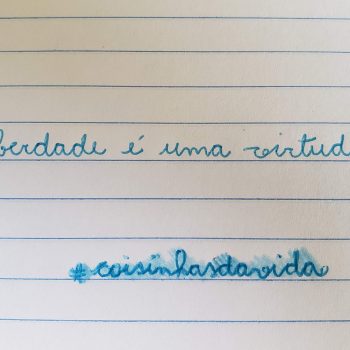 berdade é uma virtud
#coisinhasdavida